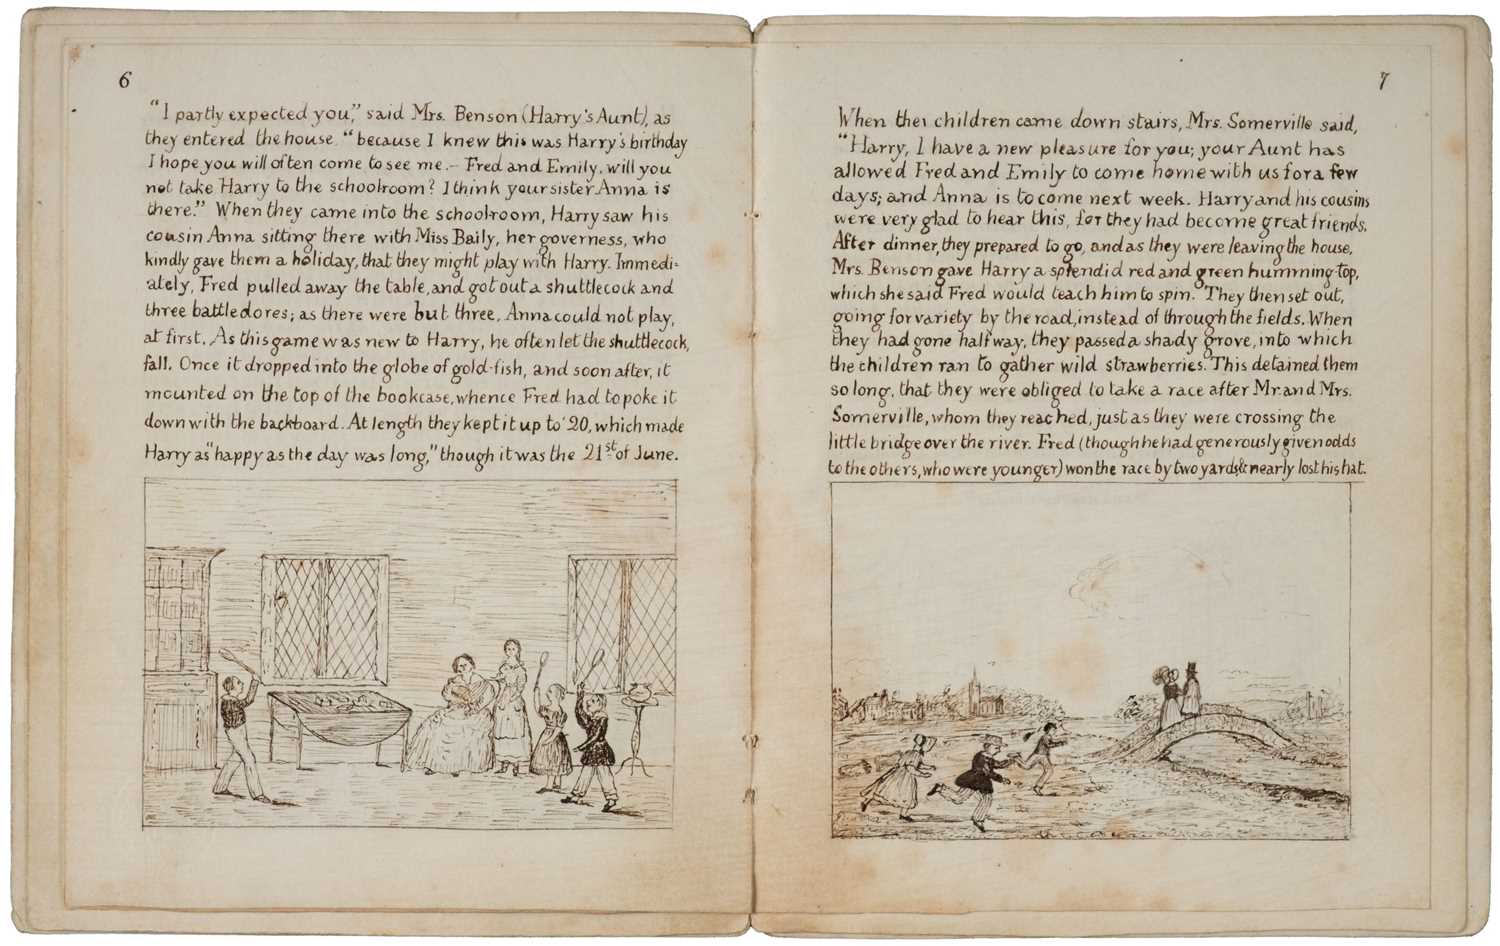 6
"I partly expected you," said Mrs. Benson (Harry's Aunt), as
they entered the house "because I knew this was Harry's birthday
I hope you will often come to see me.- Fred and Emily, will you
not take Harry to the schoolroom? I think your sister Anna is
there." When they came into the schoolroom, Harry saw his
cousin Anna sitting there with Miss Baily, her governess, who
kindly gave them a holiday, that they might play with Harry. Immedi-
ately, Fred pulled away the table, and got out a shuttlecock and
three battledores; as there were but three, Anna could not play,
at first. As this game was new to Harry, he often let the shuttlecock,
fall. Once it dropped into the globe of gold-fish, and soon after, it
mounted on the top of the bookcase, whence Fred had to poke it
down with the backboard. At length they kept it up to 20, which made
Harry as "happy as the day was long," though it was the 21st of June.
7
When the children came down stairs, Mrs. Somerville said,
"Harry, I have a new pleasure for you; your Aunt has
allowed Fred and Emily to come home with us for a few
days; and Anna is to come next week. Harry and his cousins
were very glad to hear this, for they had become great friends.
After dinner, they prepared to go, and as they were leaving the house,
Mrs. Benson gave Harry a splendid red and green humming-top,
which she said Fred would teach him to spin. They then set out,
going for variety by the road, instead of through the fields. When
they had gone half way, they passed a shady grove, into which
the children ran to gather wild strawberries. This detained them
so long, that they were obliged to take a race after Mr. and Mrs.
Somerville, whom they reached, just as they were crossing the
little bridge over the river. Fred (though he had generously given odds
to the others, who were younger) won the race by two yards & nearly lost his hat.